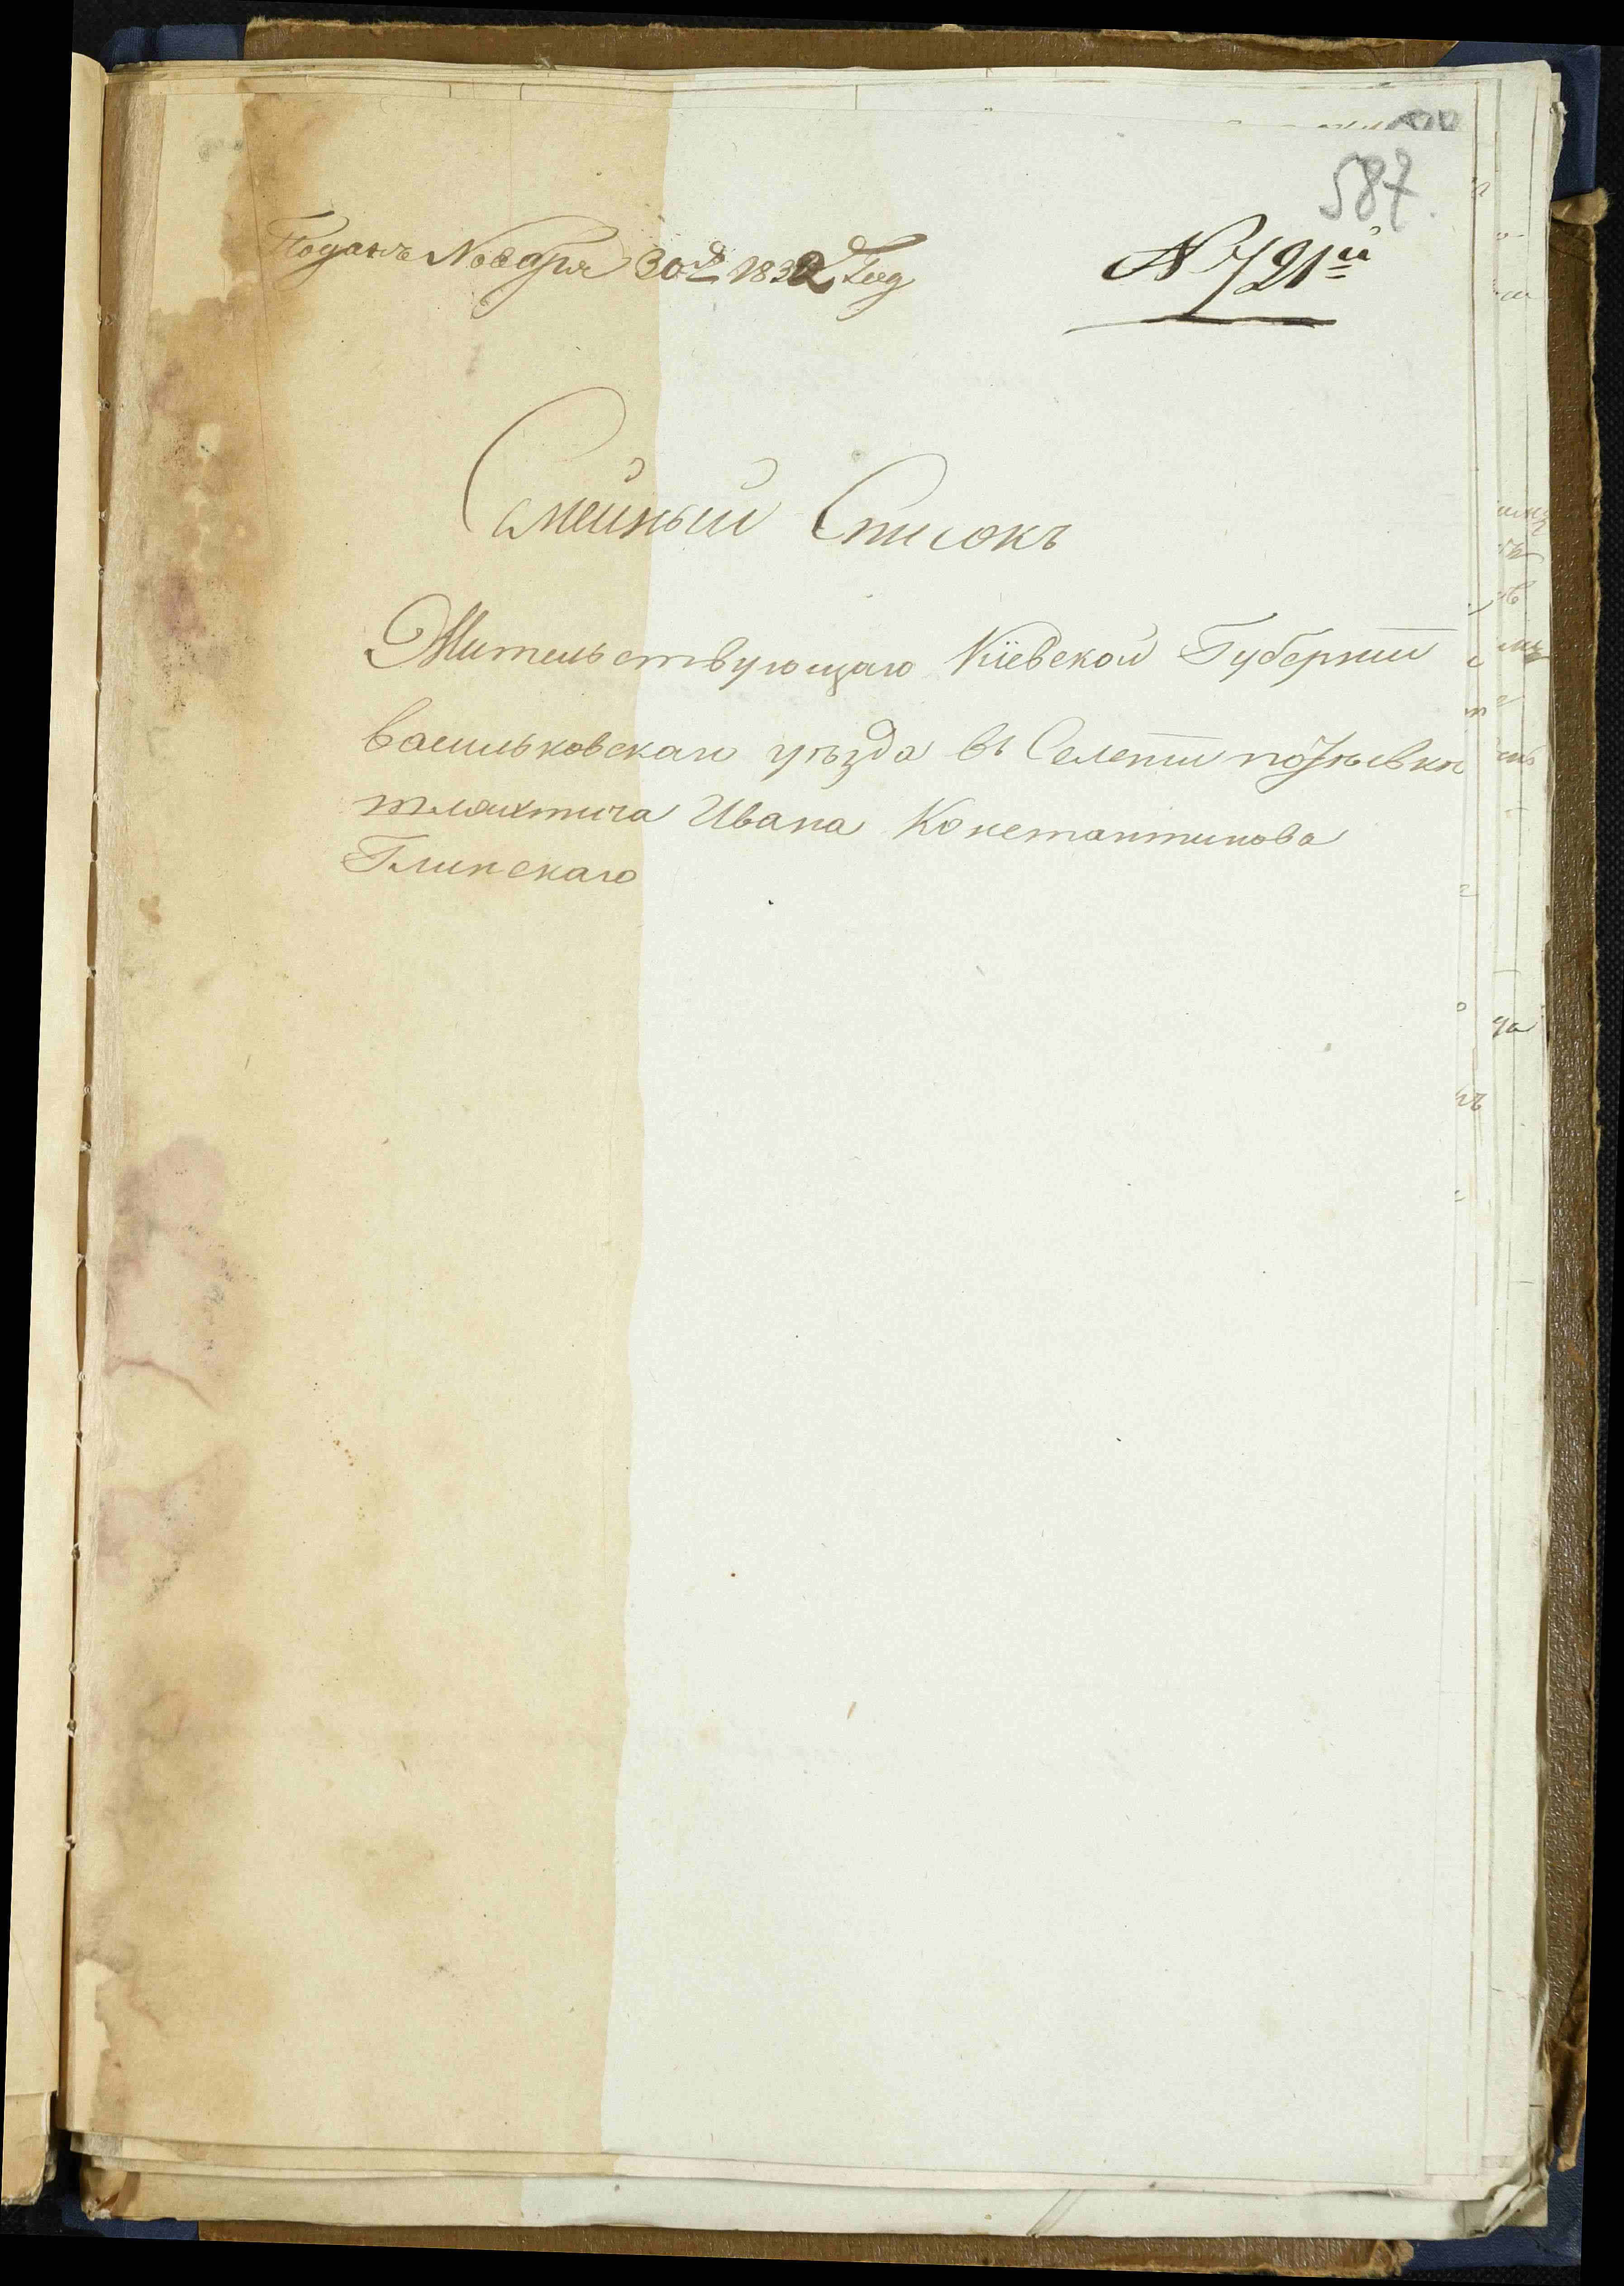 587.
Поданъ Ноября 30д 1832 Год
№ 721й
Семейный Списокъ
Жительствующаго Кіевской Губерніи
васильковскаго уѣзда въ Селеніи
шляхтича Ивана Константинова
Глинскаго